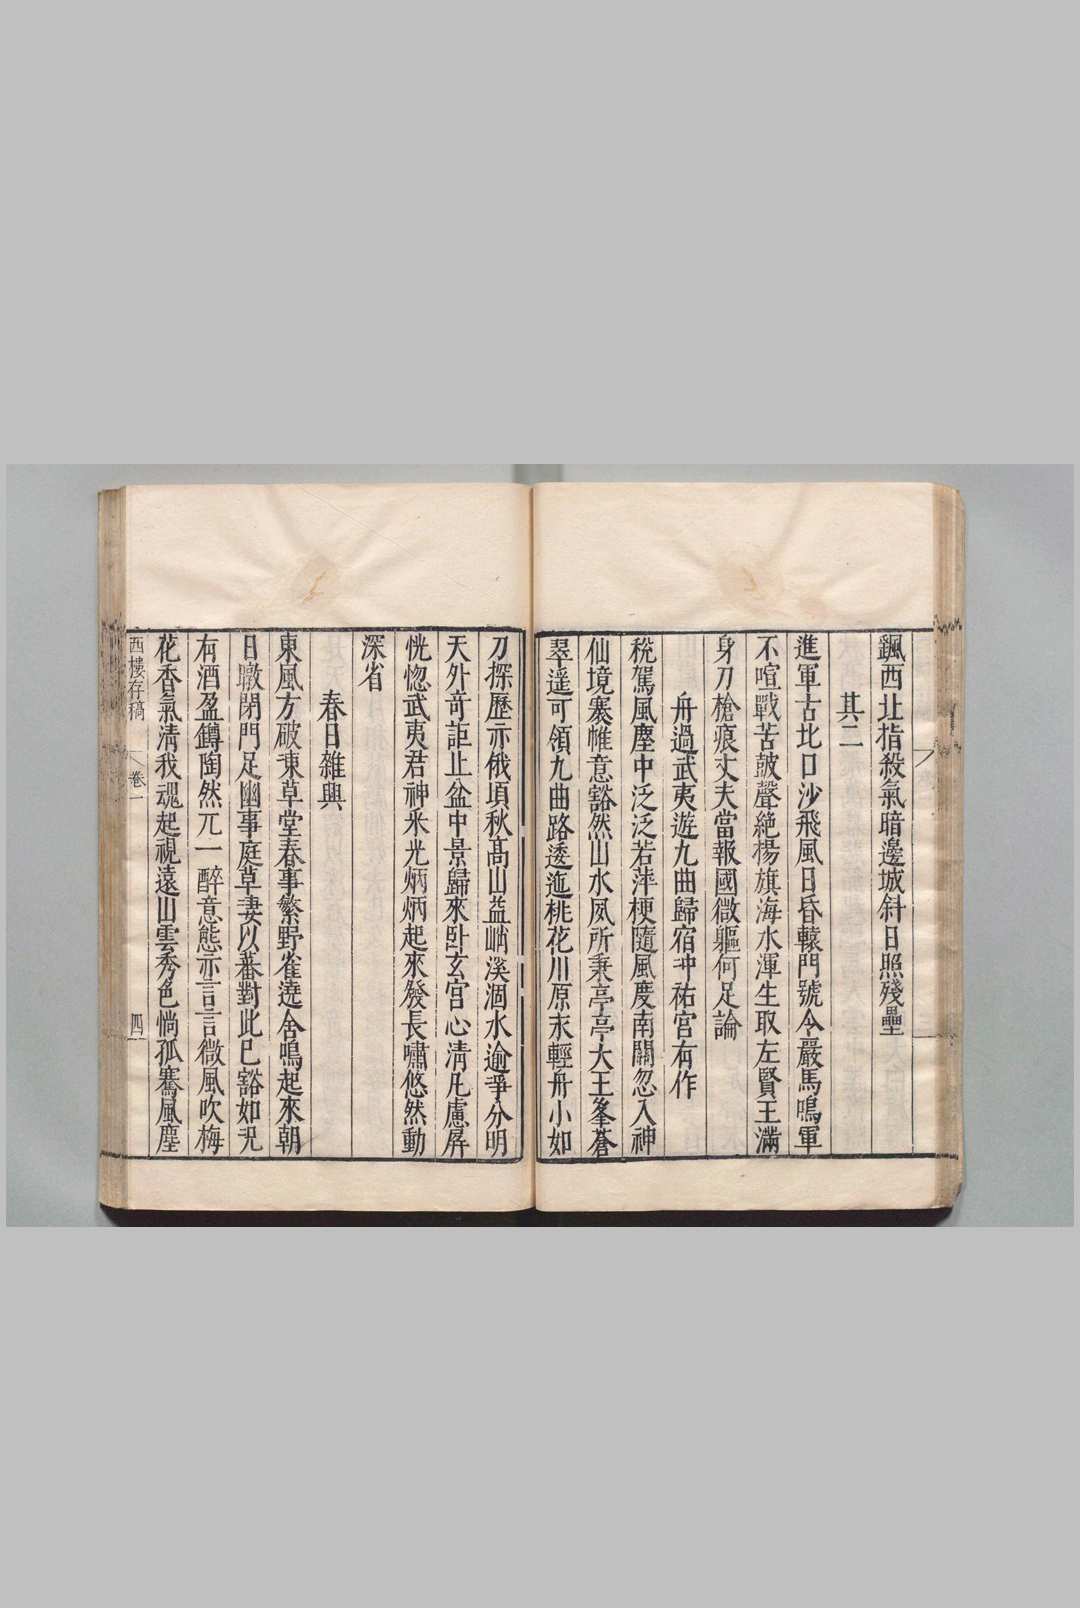 飆西北指殺氣暗邊城斜日照殘壘
其二
進軍古北口沙飛風日昏轅門號令嚴馬鳴軍
不喧戰苦皷聲絶楊旗海水渾生取左賢王滿
身刀槍痕丈夫當報國微軀何足論
舟過武夷遊九曲歸宿冲祐宮有作
稅駕風塵中泛泛若萍梗隨風度南關忽入神
仙境褰帷意豁然山水夙所秉亭亭大王峯蒼
翠遥可領九曲路逶迤桃花川原永輕舟小如
刀探歷亦俄頃秋高山益峭溪涸水逾爭分明
天外奇詎止盆中景歸來卧玄宮心清凡慮屏
恍惚武夷君神采光炳炳起來發長嘯悠然動
深省
春日雜興
東風方破凍草堂春事繁野雀遶舍鳴起來朝
日暾閉門足幽事庭草萋以蕃對此已豁如況
有酒盈罇陶然兀一醉意態亦言言微風吹梅
花香氣清我魂起視遠山雲秀色惝孤騫風塵
西樓存稿
卷一
四